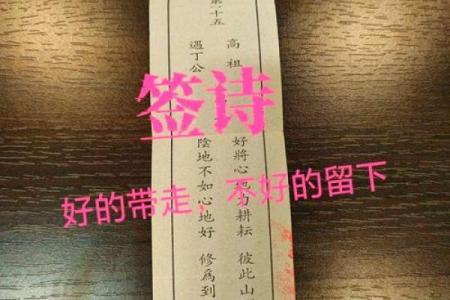 十五
高祖
遇丁公
签诗
好將心地力耕耘 彼此山
陰地不如心地好 修爲到
好的带走，不好的留下